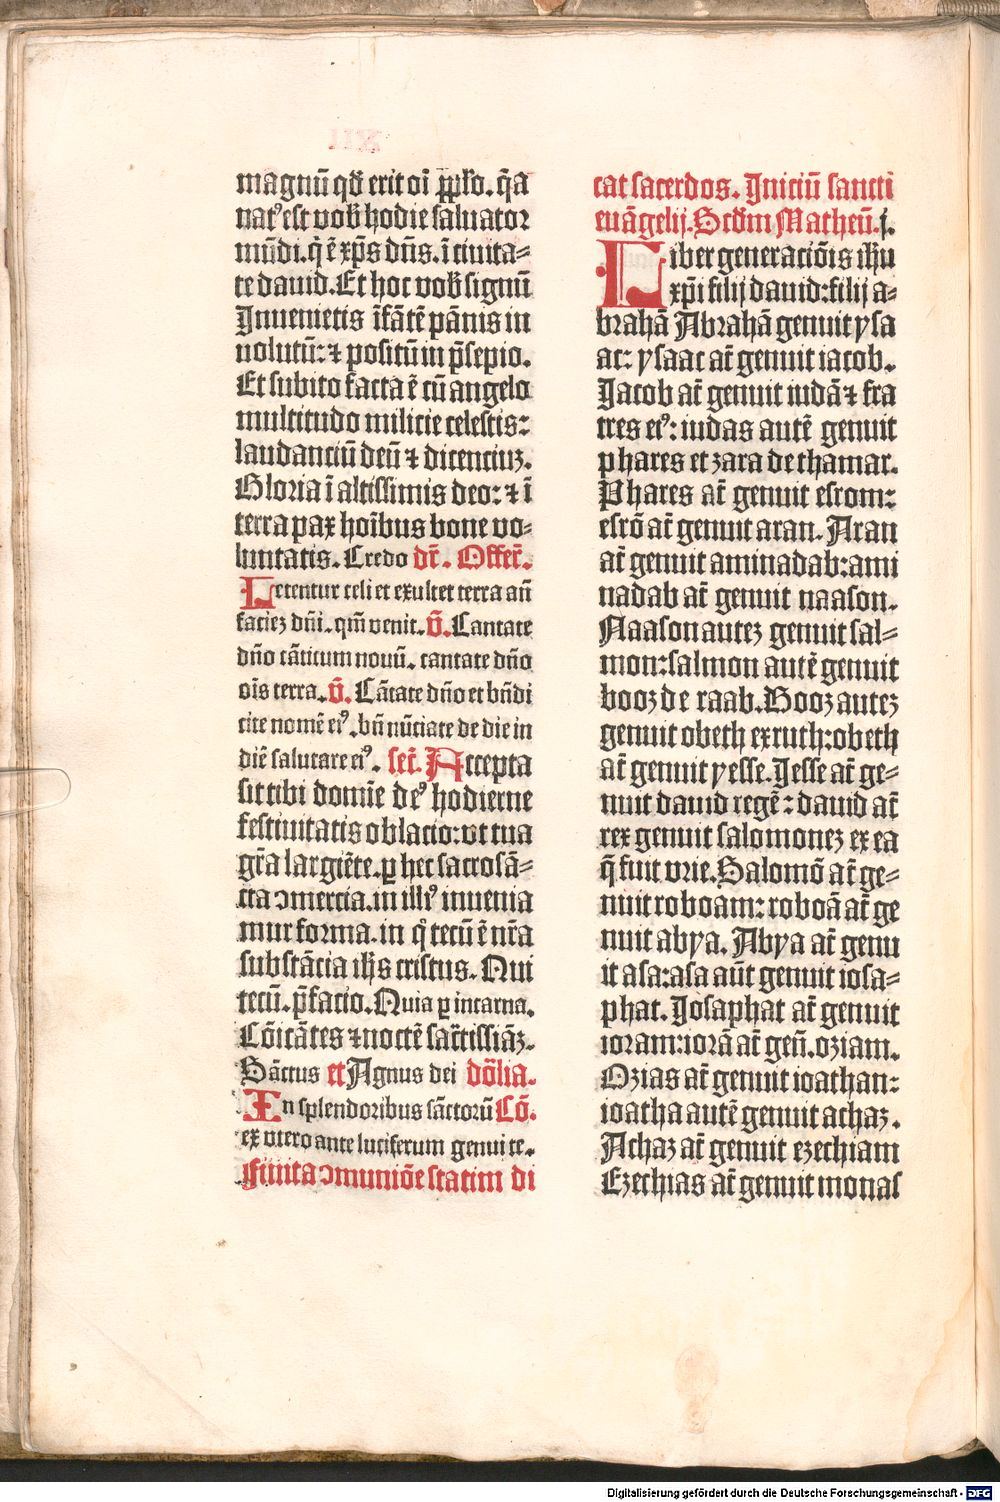 magnū qd̄ erit oī pplo. q̄a
natꝰ est vob̄ hodie saluator
mūdi. q̇ ē xp̄s dn̄s. ī ciuita⸗
te dauid. Et hoc vob̄ signū
Inuenietis īfātē pānis in
uolutū: ⁊ positū in p̄sepio.
Et subito facta ē cū angelo
multitudo milicie celestis:
laudanciū deū ⁊ dicenciuꝫ.
Gloria ī altissimis deo: ⁊ ī
terra pax hoībus bone vo⸗
luntatis. Credo dr̄. Offer̄.
Letentur celi et exultet terra an̄
facieꝫ dn̄i. qm̄ venit. v̄. Cantate
dn̄o cāticum nouū. cantate dn̄o
oīs terra. v̄. Cātate dn̄o et bn̄di
cite nomē eiꝰ. bn̄ nūciate de die in
diē salutare eiꝰ. secr̄. Accepta
sit tibi domīe deꝰ hodierne
festiuitatis oblacio: vt tua
gr̄a largiēte. ꝑ hec sacrosā⸗
cta ↄmercia. in illiꝰ inuenia
mur forma. in q̊ tecū ē nr̄a
substācia ih̄s cristus. Qui
tecū. p̄facio. Quia ꝑ incarna.
Cōicātes ⁊ noctē sacr̄tissiāꝫ.
Sāctus et Agnus dei dōlia.
In splendoribus sāctorū Cō.
ex vtero ante luciferum genui te.
Finita ↄmuniōe statim di
cat sacerdos. Iniciū sancti
euāgelij. Scd̄m Matheū. j.
Liber generaciōis ihū
xp̄i filij dauid: filij a⸗
brahā Abrahā genuit ysa
ac: ysaac at̄ genuit iacob.
Jacob at̄ genuit iudā ⁊ fra
tres eiꝰ: iudas autē genuit
phares et zara de thamar.
Phares at̄ genuit esrom:
esrō at̄ genuit aran. Aran
at̄ genuit aminadab: ami
nadab at̄ genuit naason.
Naason auteꝫ genuit sal⸗
mon: salmon autē genuit
booz de raab. Booz auteꝫ
genuit obeth ex ruth: obeth
at̄ genuit yesse. Jesse at̄ ge⸗
nuit dauid regē: dauid at̄
rex genuit salomoneꝫ ex ea
q̄ fuit vrie. Salomō at̄ ge⸗
nuit roboam: roboā at̄ ge
nuit abya. Abya at̄ genu
it asa: asa aūt genuit iosa⸗
phat. Josaphat at̄ genuit
ioram: iorā at̄ gen̄. oziam.
Ozias at̄ genuit ioathan:
ioatha autē genuit achaz.
Achaz at̄ genuit ezechiam
Ezechias at̄ genuit monas
Digitalisierung gefördert durch die Deutsche Forschungsgemeinschaft - DFG